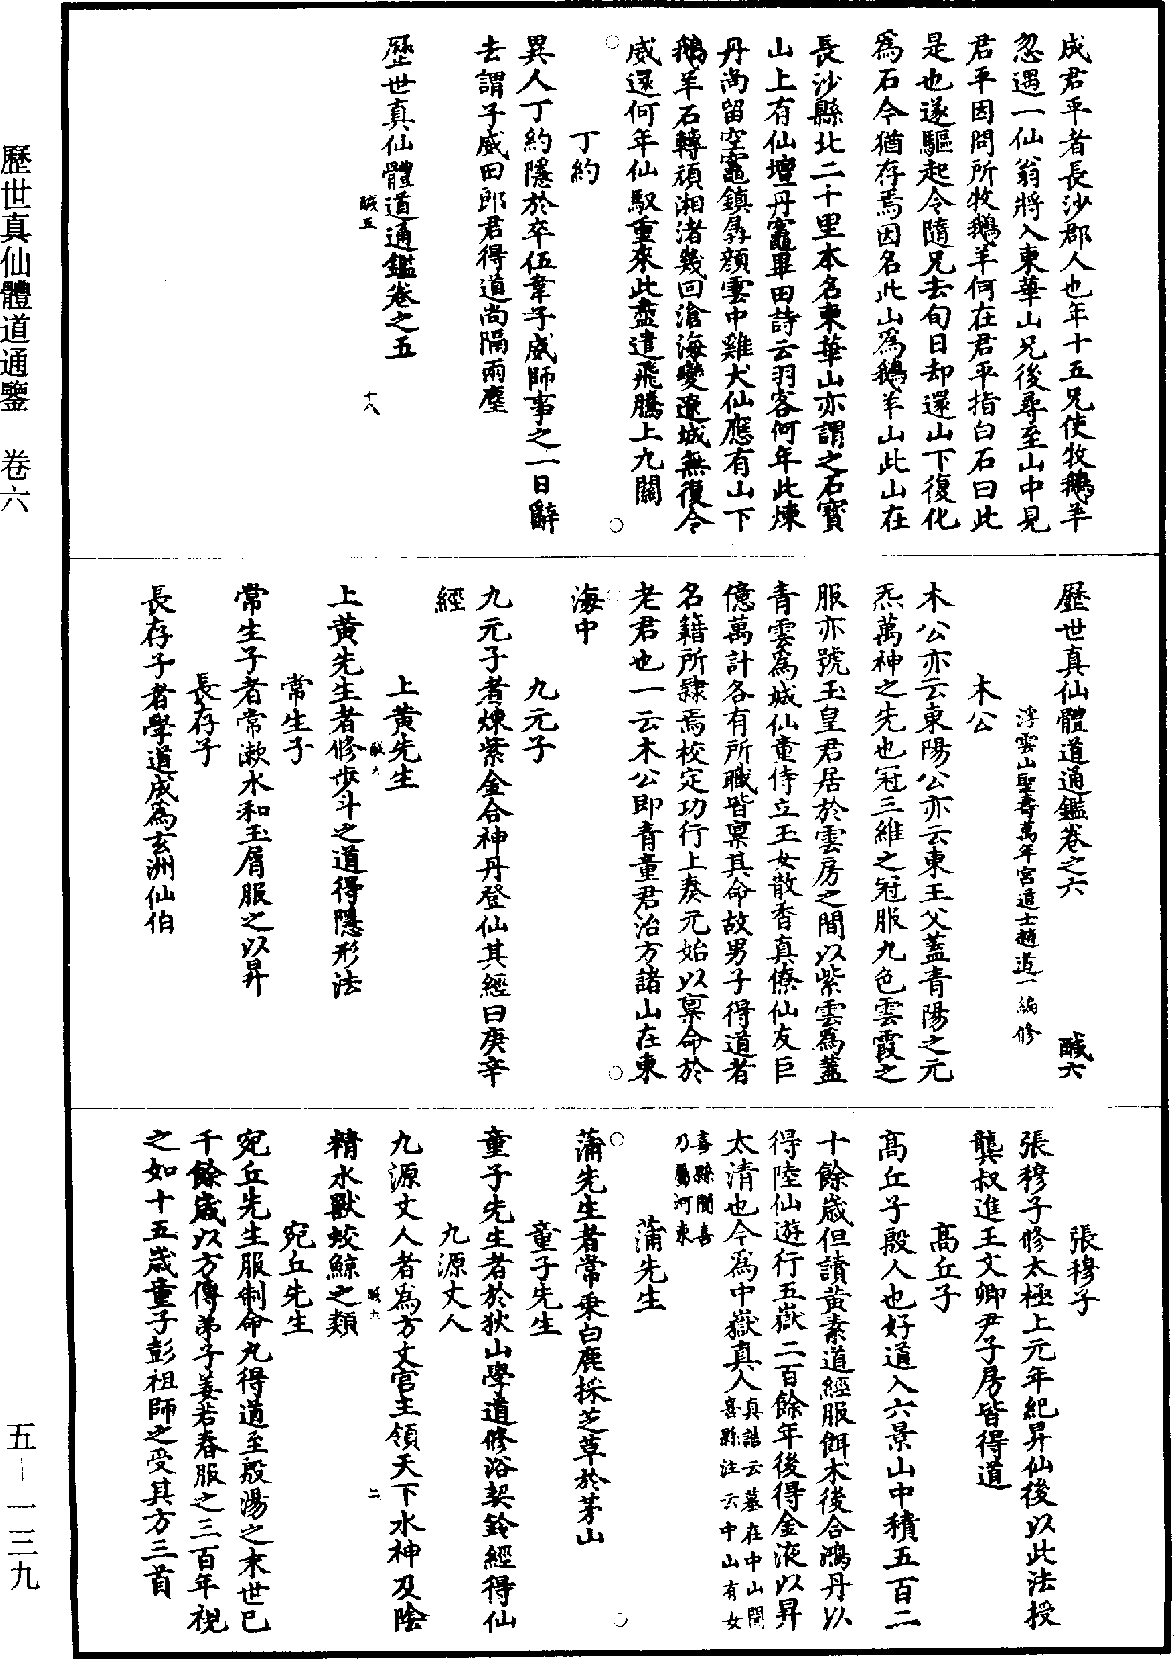 成君平者長沙郡人也年十五兄使牧鵝羊
忽遇一仙翁將入東華山兄後尋至山中見
君平因問所牧鵝羊何在君平指白石曰此
是也遂驅起令隨兄去旬日却還山下復化
為石今猶存焉因名此山為鵝羊山此山在
長沙縣北二十里本名東華山亦謂之石寶
山上有仙壇丹竈畢田詩云羽客何年此煉
丹尚留空竈鎮孱顏雲中雞犬仙應有山下
鵝羊石轉頑湘渚幾回滄海變遼城無復令
威還何年仙馭重來此盡遣飛騰上九關
丁約
異人丁約隱於卒伍韋子威師事之一日辭
去謂子威曰郎君得道尚隔兩塵
歷世真仙體道通鑑卷之五
醎五 十八
歷世真仙體道通鑑卷之六 醎六
浮雲山聖壽萬年宮道士趙道一編修
木公
木公亦云東陽公亦云東王父蓋青陽之元
炁萬神之先也冠三維之冠服九色雲霞之
服亦號玉皇君居於雲房之間以紫雲為蓋
青雲為城仙童侍立玉女散香真僚仙友巨
億萬計各有所職皆稟其命故男子得道者
名籍所隸焉校定功行上奏元始以稟命於
老君也一云木公即青童君治方諸山在東
海中
九元子
九元子者煉紫金合神丹登仙其經曰庚辛
經
上黃先生
醎六
上黃先生者修步斗之道得隱形法
常生子
常生子者常漱水和玉屑服之以昇
長存子
長存子者學道成為玄洲仙伯
張穆子
張穆子修太極上元年紀昇仙後以此法授
龔叔進王文卿尹子房皆得道
高丘子
高丘子殷人也好道入六景山中積五百二
十餘歲但讀黃素道經服餌术後合鴻丹以
得陸仙遊行五嶽二百餘年後得金液以昇
太清也今為中嶽真人真誥云墓在中山聞
喜縣注云中山有女
喜縣聞喜
乃屬河東
蒲先生
蒲先生者常乘白鹿採芝草於茅山
童子先生
童子先生者於狄山學道修浴契鈐經得仙
九源丈人
九源丈人者為方丈宮主領天下水神及陰
醎六 二
精水獸蛟鯨之類
宛丘先生
宛丘先生服制命丸得道至殷湯之末世已
千餘歲以方傳弟子姜若春服之三百年視
之如十五歲童子彭祖師之受其方三首
歷世真仙體道通鑒 卷六
五－一三九